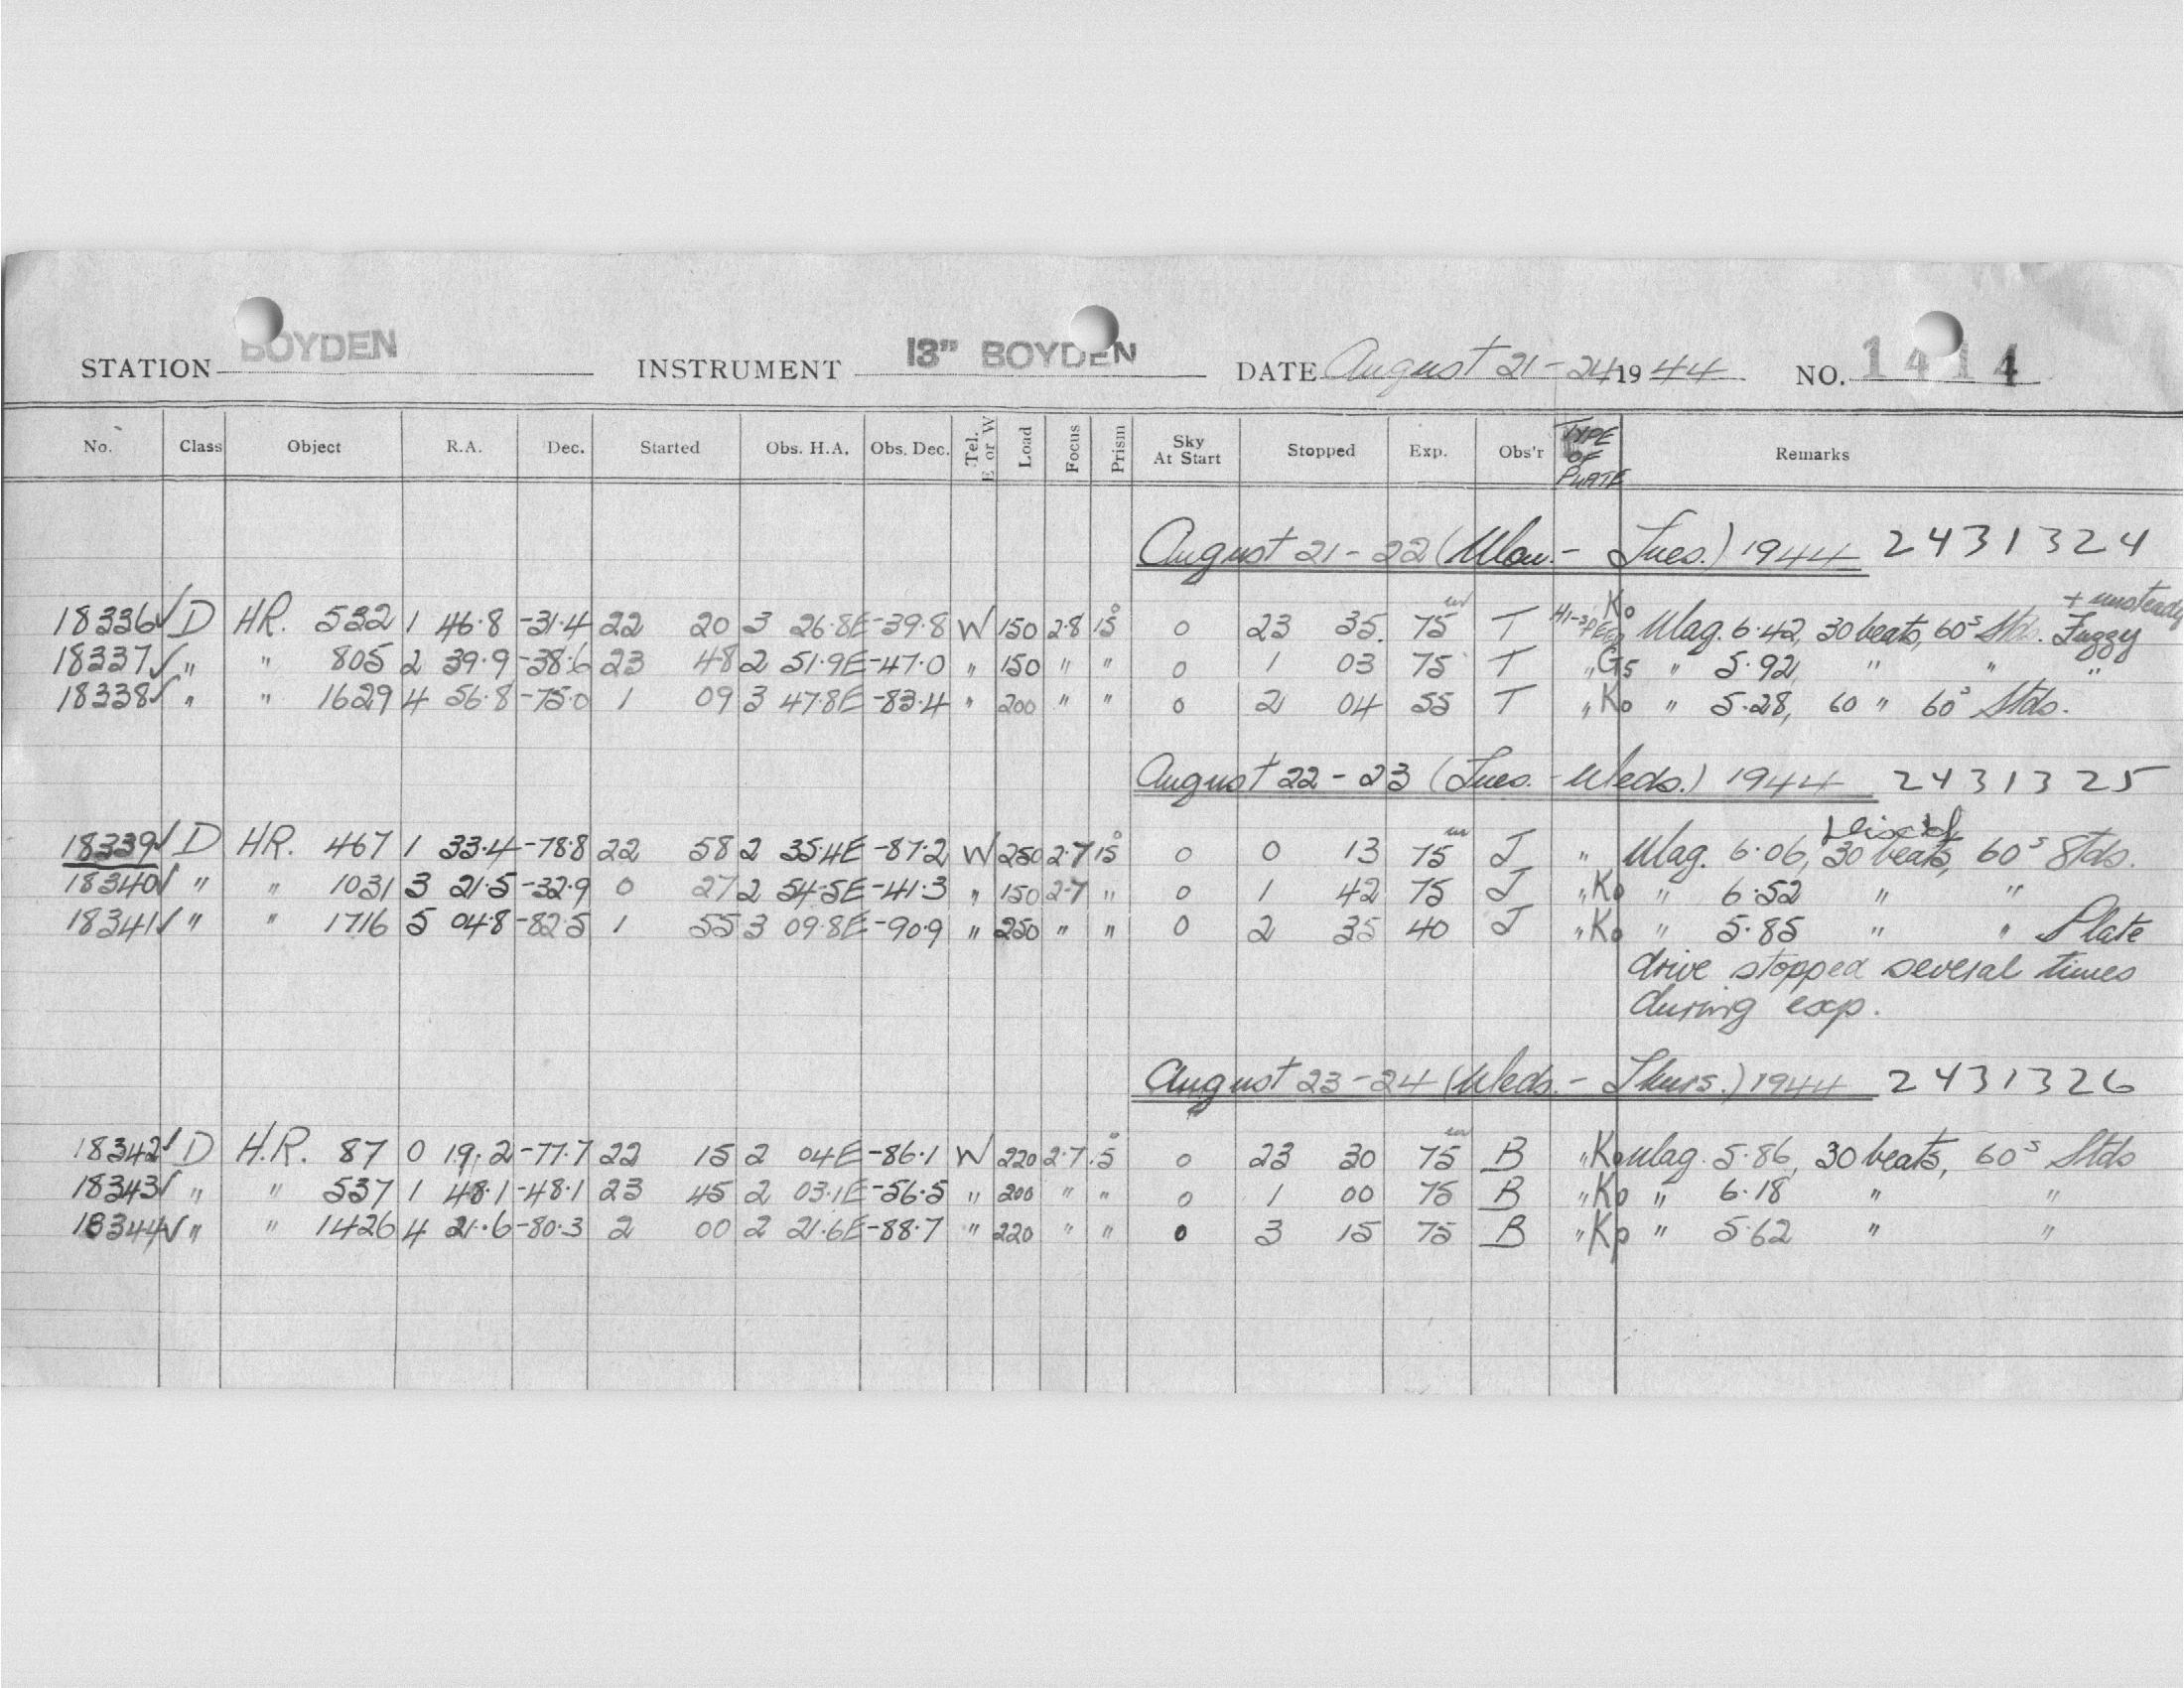 STATION BOYDEN INSTRUMENT 13" BOYDEN DATE August 21-24 1944 NO. 1414
No. Class Object R.A. Dec. Started Obs. H.A. Obs. Dec. Tel. E or W Load Focus Prism Sky At Start Stopped Exp. Obs'r TYPE OF PLATE Remarks
August 21-22 (Mon. - Tues.) 1944 2431324
+ unsteady
18336✓ D HR. 532 1 46.8 -31.4 22 20 3 26.8E -39.8 W 150 2.8 15° 0 23 35. 75m T K0 Mag. 6.42, 30 beats, 60s Stds. Fuzzy
18337✓ " " 805 2 39.9 -38.6 23 48 2 51.9E -47.0 " 150 " " 0 1 03 75 T " G5 " 5.92, " " "
18338✓ " " 1629 4 56.8 -75.0 1 09 3 47.8E -83.4 " 200 " " 0 2 04 55 T " K0 " 5.28, 60 " 60s Stds.
August 22-23 (Tues. - Weds.) 1944 2431325
18339✓ D HR. 467 1 33.4 -78.8 22 58 2 35.4E -87.2 W 250 2.7 15° 0 0 13 75m J " Mag. 6.06, 30 beats, 60s Stds.
18340✓ " " 1031 3 21.5 -32.9 0 27 2 54.5E -41.3 " 150 2.7 " 0 1 42 75 J " K0 " 6.52 " "
18341✓ " " 1716 5 04.8 -82.5 1 55 3 09.8E -90.9 " 250 " " 0 2 35 40 J " K0 " 5.85 " " Plate
drive stopped several times
during exp.
August 23-24 (Weds. - Thurs.) 1944 2431326
18342✓ D H.R. 87 0 19.2 -77.7 22 15 2 04E -86.1 W 220 2.7 15° 0 23 30 75m B " K0 Mag. 5.86, 30 beats, 60s Stds
18343✓ " " 537 1 48.1 -48.1 23 45 2 03.1E -56.5 " 200 " " 0 1 00 75 B " K0 " 6.18 " "
18344✓ " " 1426 4 21.6 -80.3 2 00 2 21.6E -88.7 " 220 " " 0 3 15 75 B " " 5.62 " "